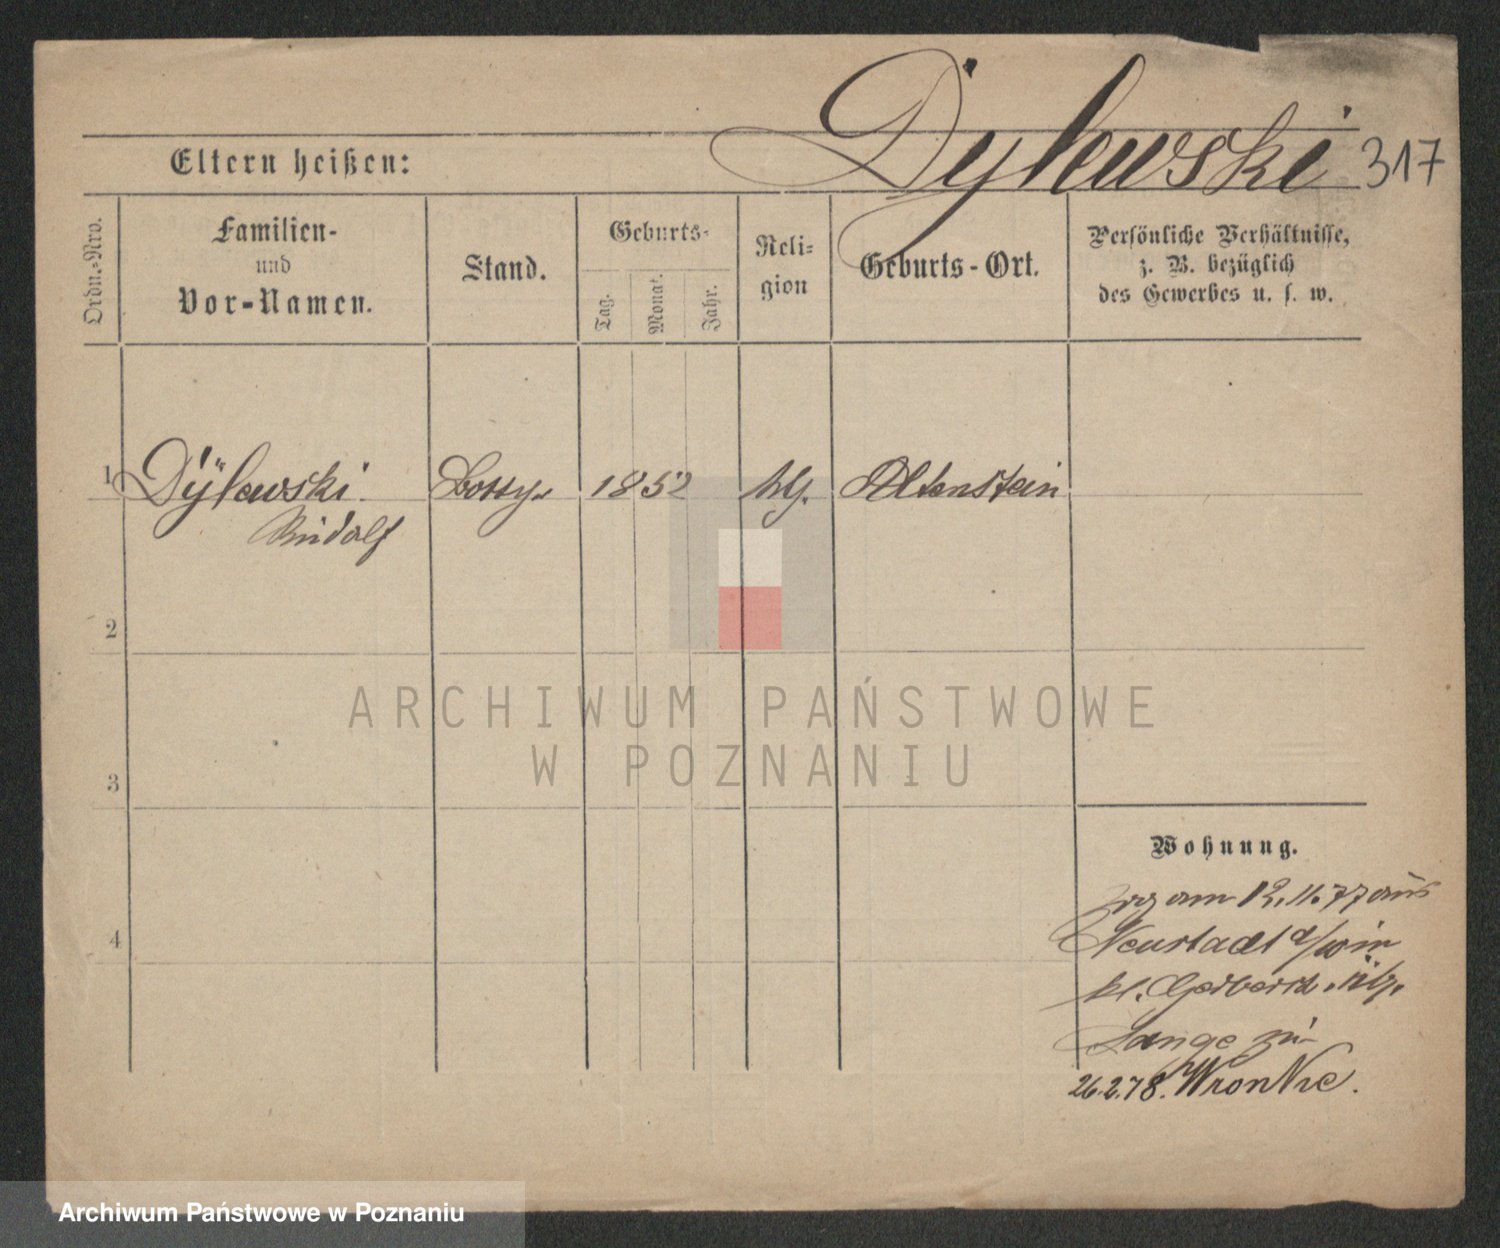 Dylewski 317
Eltern heißen:
Ordn.-Nro.
Familien-
und
Vor-Namen.
Stand.
Geburts-
Tag.
Monat.
Jahr.
Reli-
gion
Geburts-Ort.
Persönliche Verhältnisse,
z. B. bezüglich
des Gewerbes u. s. w.
1 Dÿlewski 1852 Altenstein
Rudolf
2
3
4
ARCHIWUM PAŃSTWOWE
W POZNANIU
Wohnung.
am 12.11.77 aus
Neustadt a/w in
kl. Gerberstr.
Lange
26.2.78. Wronke.
Archiwum Państwowe w Poznaniu